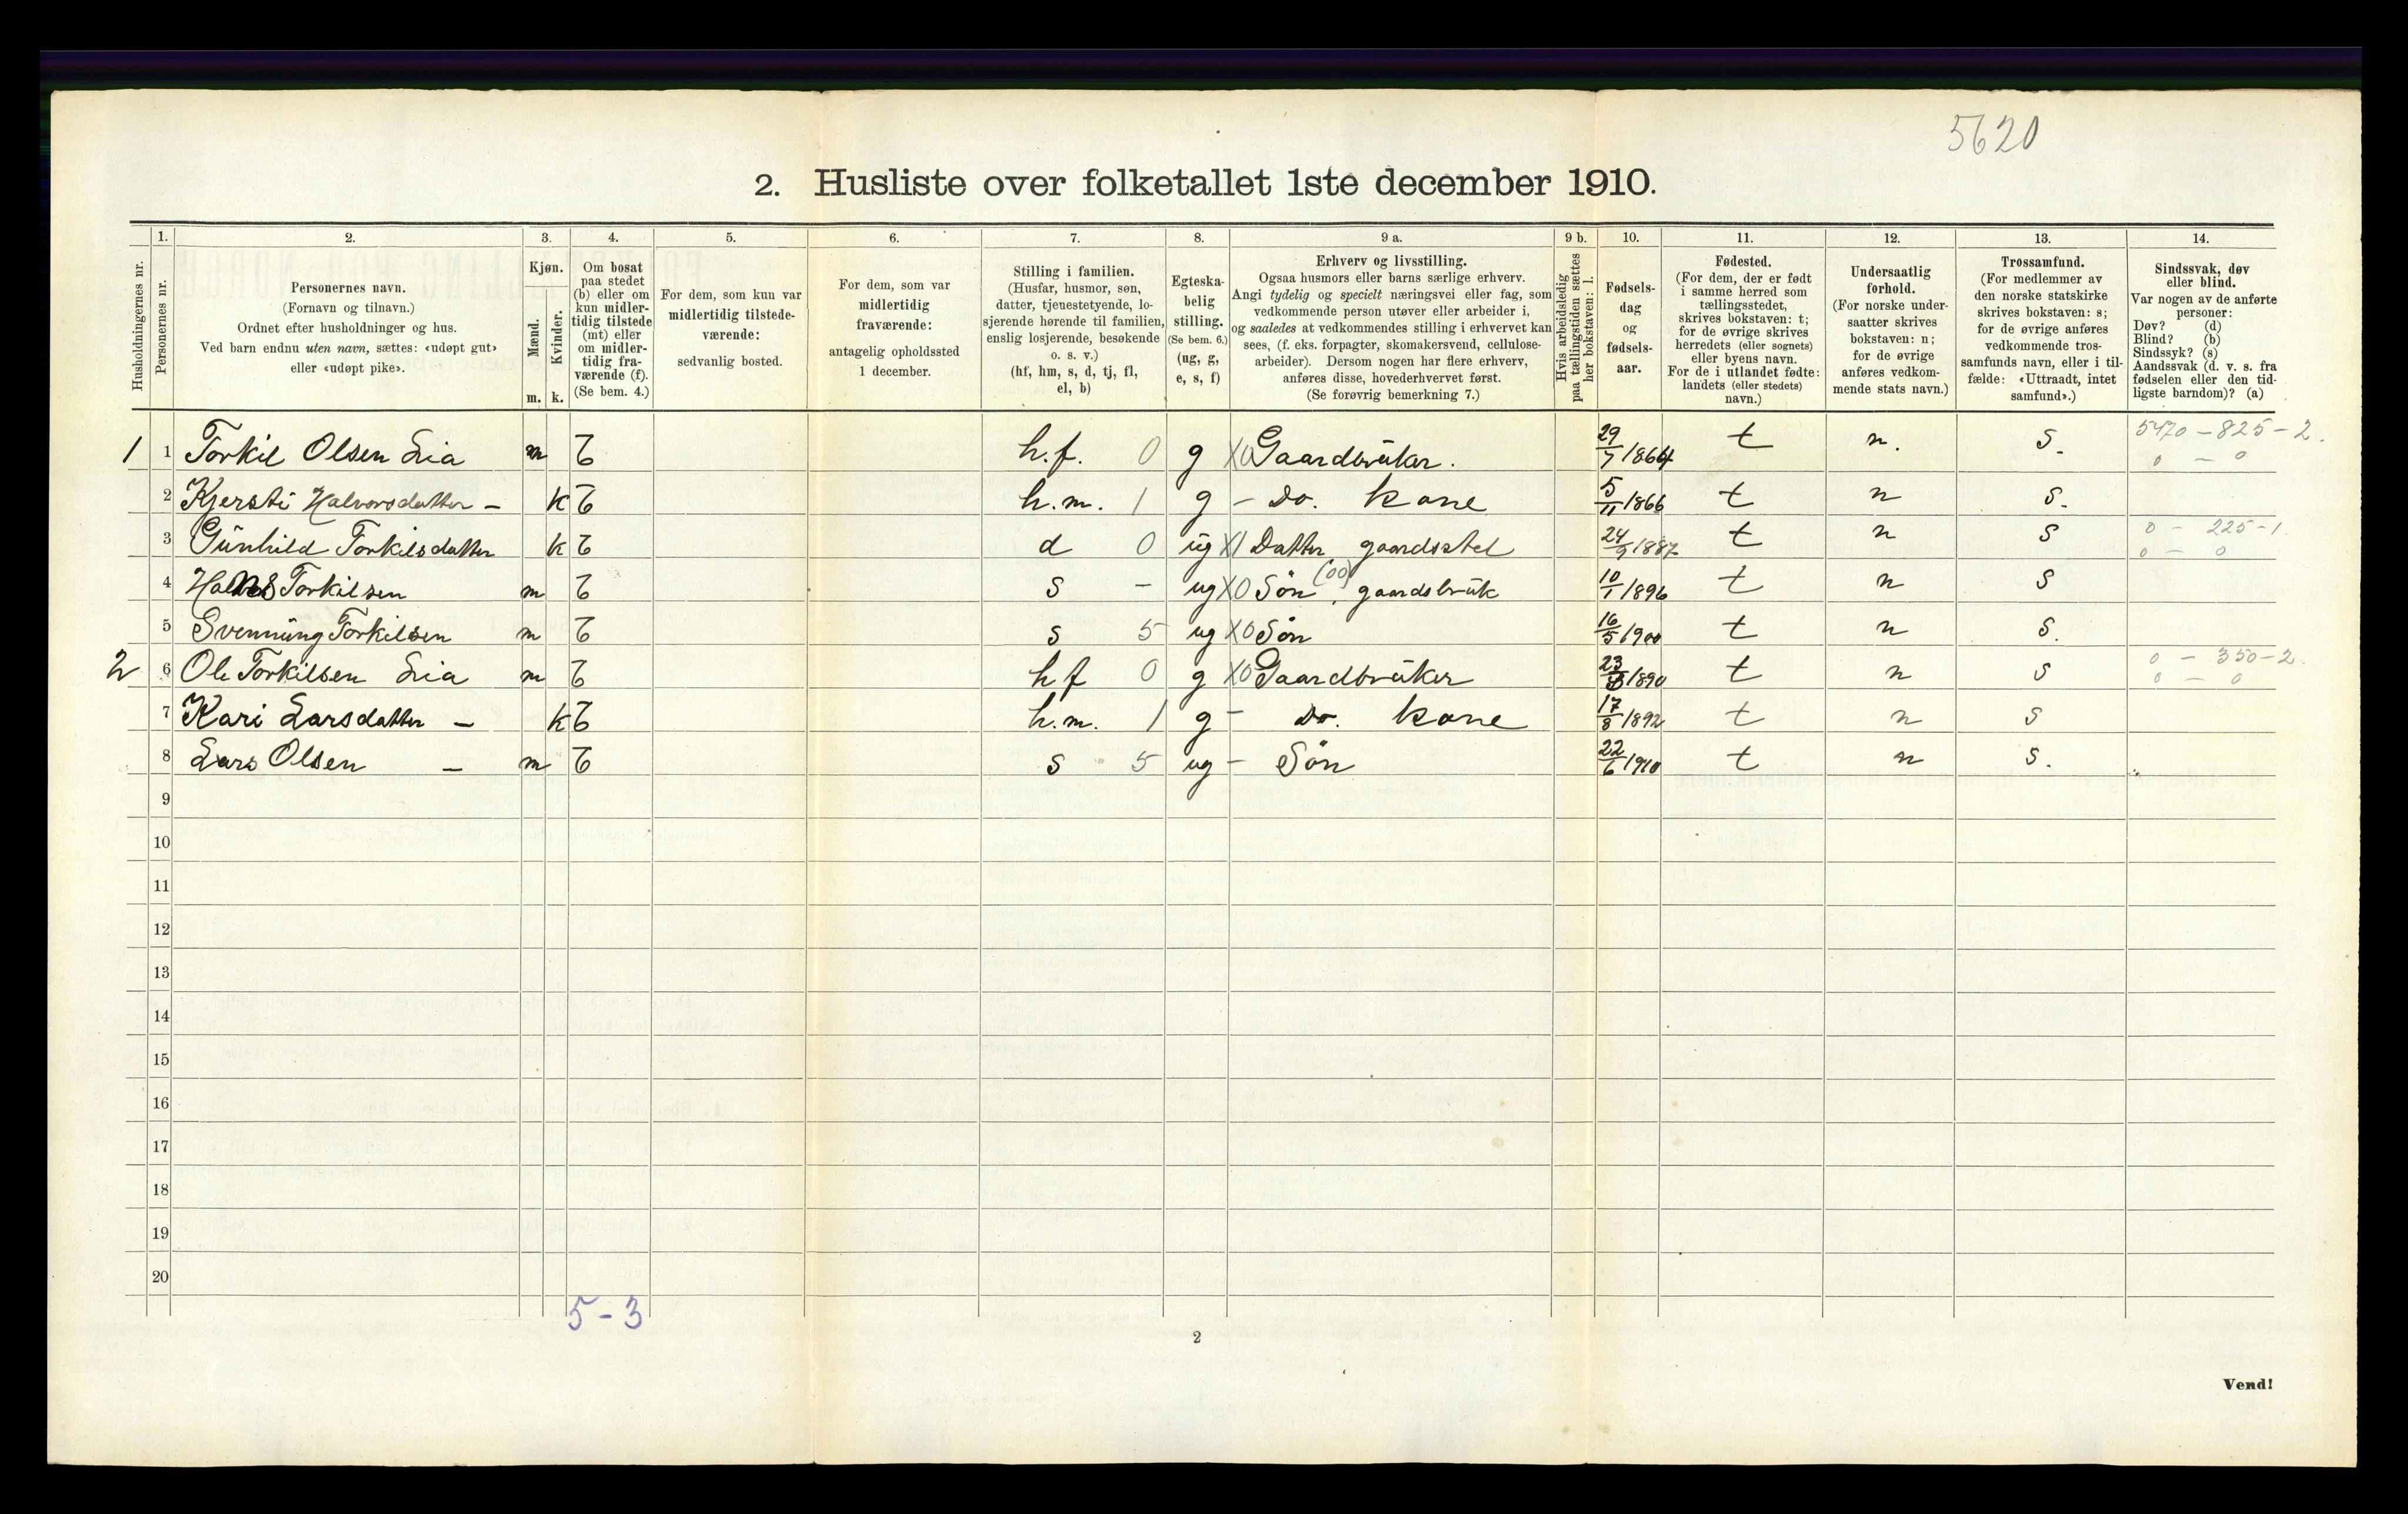 5620
2. Husliste over folketallet 1ste december 1910.
Husholdningernes nr.
1.
Personernes nr.
2.
Personernes navn.
(Fornavn og tilnavn.)
Ordnet efter husholdninger og hus.
Ved barn endnu uten navn, sættes: «udøpt gut»
eller «udøpt pike».
3.
Kjøn.
Mænd.
Kvinder.
m. k.
4.
Om bosat
paa stedet
(b) eller om
kun midler-
tidig tilstede
(mt) eller
om midler-
tidig fra-
værende (f).
(Se bem. 4.)
5.
For dem, som kun var
midlertidig tilstede-
værende:
sedvanlig bosted.
6.
For dem, som var
midlertidig
fraværende:
antagelig opholdssted
1 december.
7.
Stilling i familien.
(Husfar, husmor, søn,
datter, tjenestetyende, lo-
sjerende hørende til familien,
enslig losjerende, besøkende
o. s. v.)
(hf, hm, s, d, tj, fl,
el, b)
8.
Egteska-
belig
stilling.
(Se bem. 6.)
(ug, g,
e, s, f)
9 a.
Erhverv og livsstilling.
Ogsaa husmors eller barns særlige erhverv.
Angi tydelig og specielt næringsvei eller fag, som
vedkommende person utøver eller arbeider i,
og saaledes at vedkommendes stilling i erhvervet kan
sees, (f. eks. forpagter, skomakersvend, cellulose-
arbeider). Dersom nogen har flere erhverv,
anføres disse, hovederhvervet først.
(Se forøvrig bemerkning 7.)
9 b.
Hvis arbeidsledig
paa tællingstiden sættes
her bokstaven: l.
10.
Fødsels-
dag
og
fødsels-
aar.
11.
Fødested.
(For dem, der er født
i samme herred som
tællingsstedet,
skrives bokstaven: t;
for de øvrige skrives
herredets (eller sognets)
eller byens navn.
For de i utlandet fødte:
landets (eller stedets)
navn.)
12.
Undersaatlig
forhold.
(For norske under-
saatter skrives
bokstaven: n;
for de øvrige
anføres vedkom-
mende stats navn.)
13.
Trossamfund.
(For medlemmer av
den norske statskirke
skrives bokstaven: s;
for de øvrige anføres
vedkommende tros-
samfunds navn, eller i til-
fælde: «Uttraadt, intet
samfund».)
14.
Sindssvak, døv
eller blind.
Var nogen av de anførte
personer:
Døv? (d)
Blind? (b)
Sindssyk? (s)
Aandssvak (d. v. s. fra
fødselen eller den tid-
ligste barndom)? (a)
1 1 Torkil Olsen Lia m b h.f. 0 g X0 Gaardbrüker. 29/7 1864 t n. s. 5470 - 825 - 2.
0 - 0
2 Kjersti Halvorsdatter - k b h.m. 1 g - Do. kone 5/11 1866 t n s.
3 Günhild Torkilsdatter k b d 0 üg X1 Datter, gaardsstel 24/9 1887 t n s 0 - 225 - 1.
0 - 0
4 Torkilsen m b s - ug X0 Sön, (00) gaardsbrük 10/1 1896 t n s
5 Svennüng Torkilsen m b s 5 ug X0 Sön 16/5 1900 t n s.
2 6 Ole Torkilsen Lia m b hf 0 g X0 Gaardbrüker 23/ 1890 t n s 0 - 350 - 2.
0 - 0
7 Kari Larsdatter - k b h.m. 1 g - Do. kone 17/8 1892 t n s
8 Lars Olsen - m b s 5 ug - Sön 22/6 1910 t n s.
9
10
11
12
13
14
15
16
17
18
19
20
5 - 3
2
Vend!